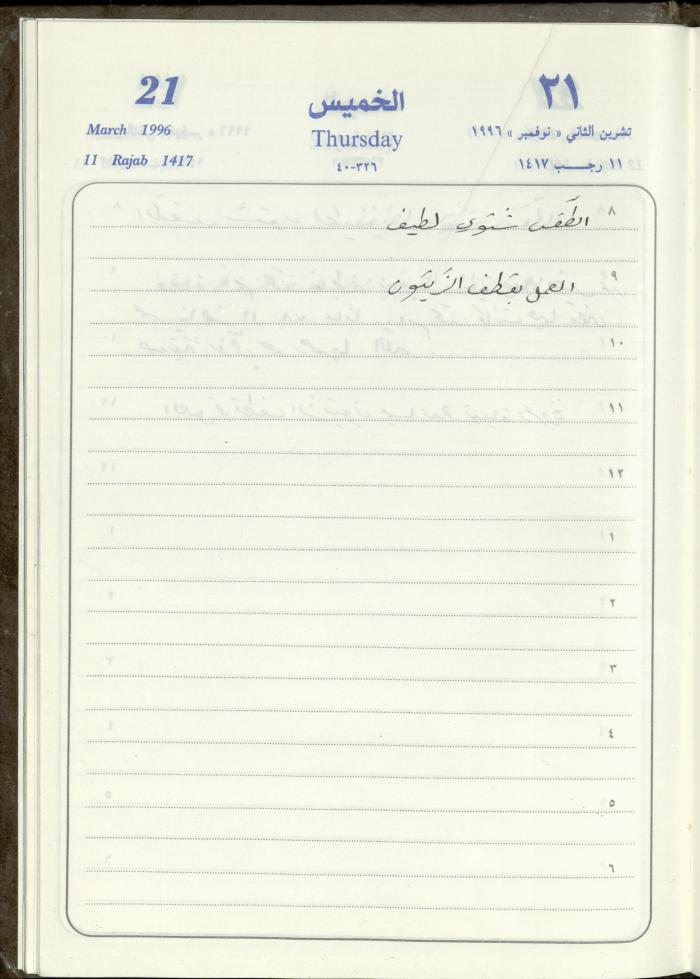 21 الخميس ٢١
March 1996 Thursday تشرين الثاني « نوفمبر » ١٩٩٦
11 Rajab 1417 ٤٠-٣٢٦ ١١ رجب ١٤١٧
٨ الطَّقس شتوي لطيف
٩ العمل بقطف الزَّيتون
١٠
١١
١٢
١
٢
٣
٤
٥
٦